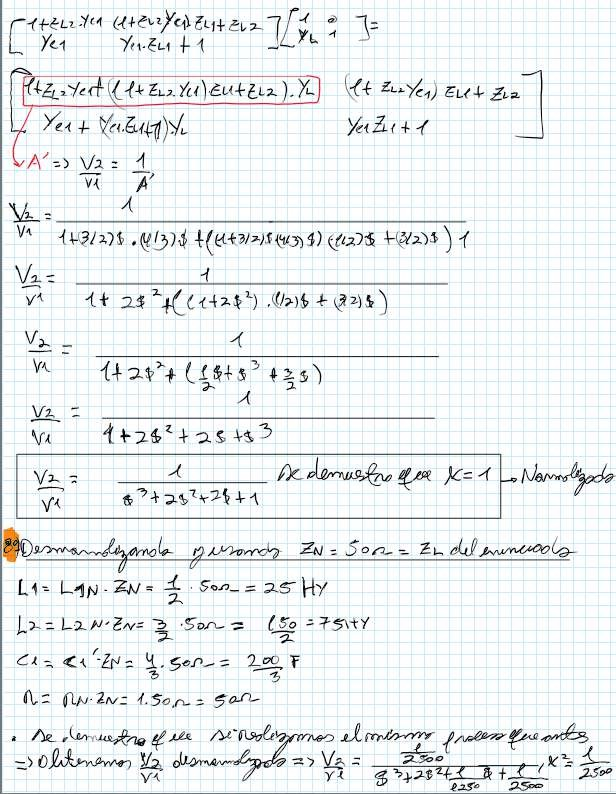 [1+ZL2.Ye1 (1+ZL2Ye1).ZL1+ZL2] [1 0] =
[Ye1 Ye1.ZL1+1] [YL 1]
[1+ZL2Ye1+((1+ZL2.Ye1)ZL1+ZL2).YL (1+ZL2Ye1)ZL1+ZL2]
[Ye1+Ye1.ZL1+1).YL Ye1ZL1+1]
A' => V2/V1 = 1/A'
V2/V1 = 1/(1+(3/2)$.(4/3)$+((1+3/2)$(4/3)$)(1/2)$+(3/2)$)1
V2/V1 = 1/(1+2$²+((1+2$²).(1/2)$+(3/2)$)
V2/V1 = 1/(1+2$²+(1/2$+$³+3/2$)
V2/V1 = 1/(1+2$²+2$+$³
V2/V1 = 1/($³+2$²+2$+1) Se demuestra que K=1 → Normalizada
Desnormalizando y usando ZN=50Ω=ZL del enunciado
L1=L1N.ZN=1/2.50Ω=25HY
L2=L2N.ZN=3/2.50Ω=150/2=75HY
C1=C1'.ZN=4/3.50Ω=200/3 F
R=RN.ZN=1.50Ω=50Ω
. Se demuestra que si realizamos el mismo proceso que antes
=> Obtenemos V2/V1 desnormalizada => V2/V1 = (1/2500)/($³+2$²+1/1250 $+1/2500), K²=1/2500